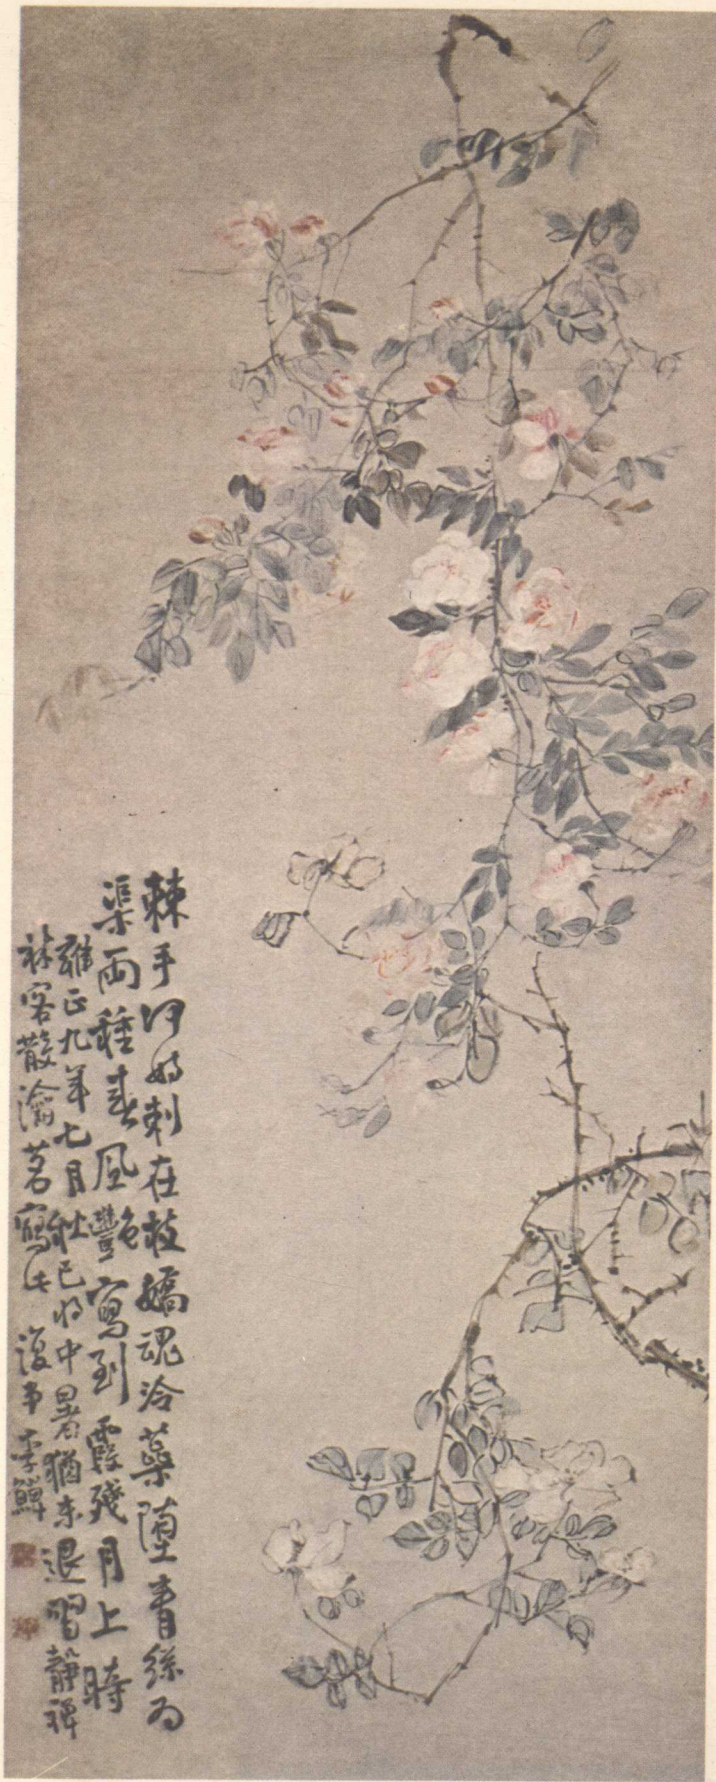 棘手何妨刺在枝嬌魂冷蕊墮青絲為
渠兩種春風艷寫到霞殘月上時
雍正九年七月秋已將中暑猶未退習靜禪
林客散瀹茗寫此 復市李鱓